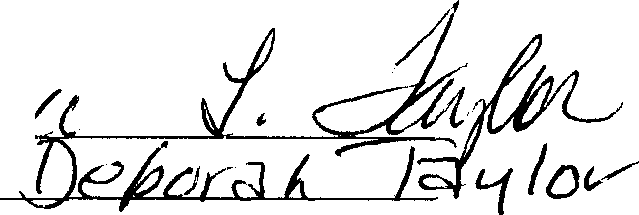 " L. Taylor
Deborah Taylor